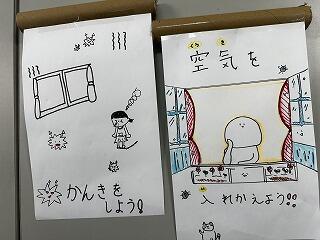 かんきを
しよう!!
くう き
空気を
い
入れかえよう!!